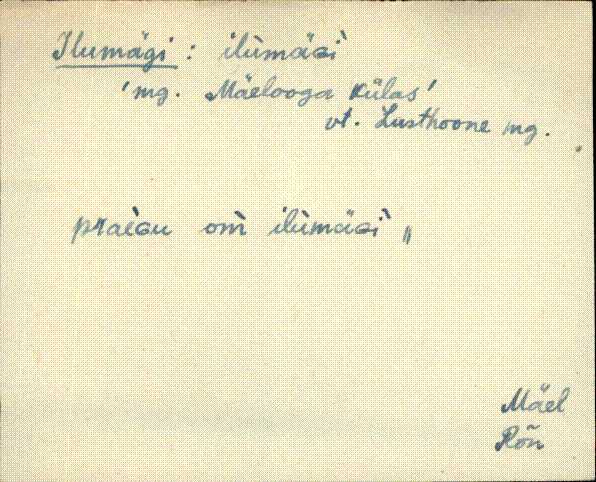 Ilumägi : ilùmäɢì
'mg. Mäelooga külas'
vt. Lusthoone mg.
praèɢu om̀ ilùmäɢì „
Mäel
Rõn